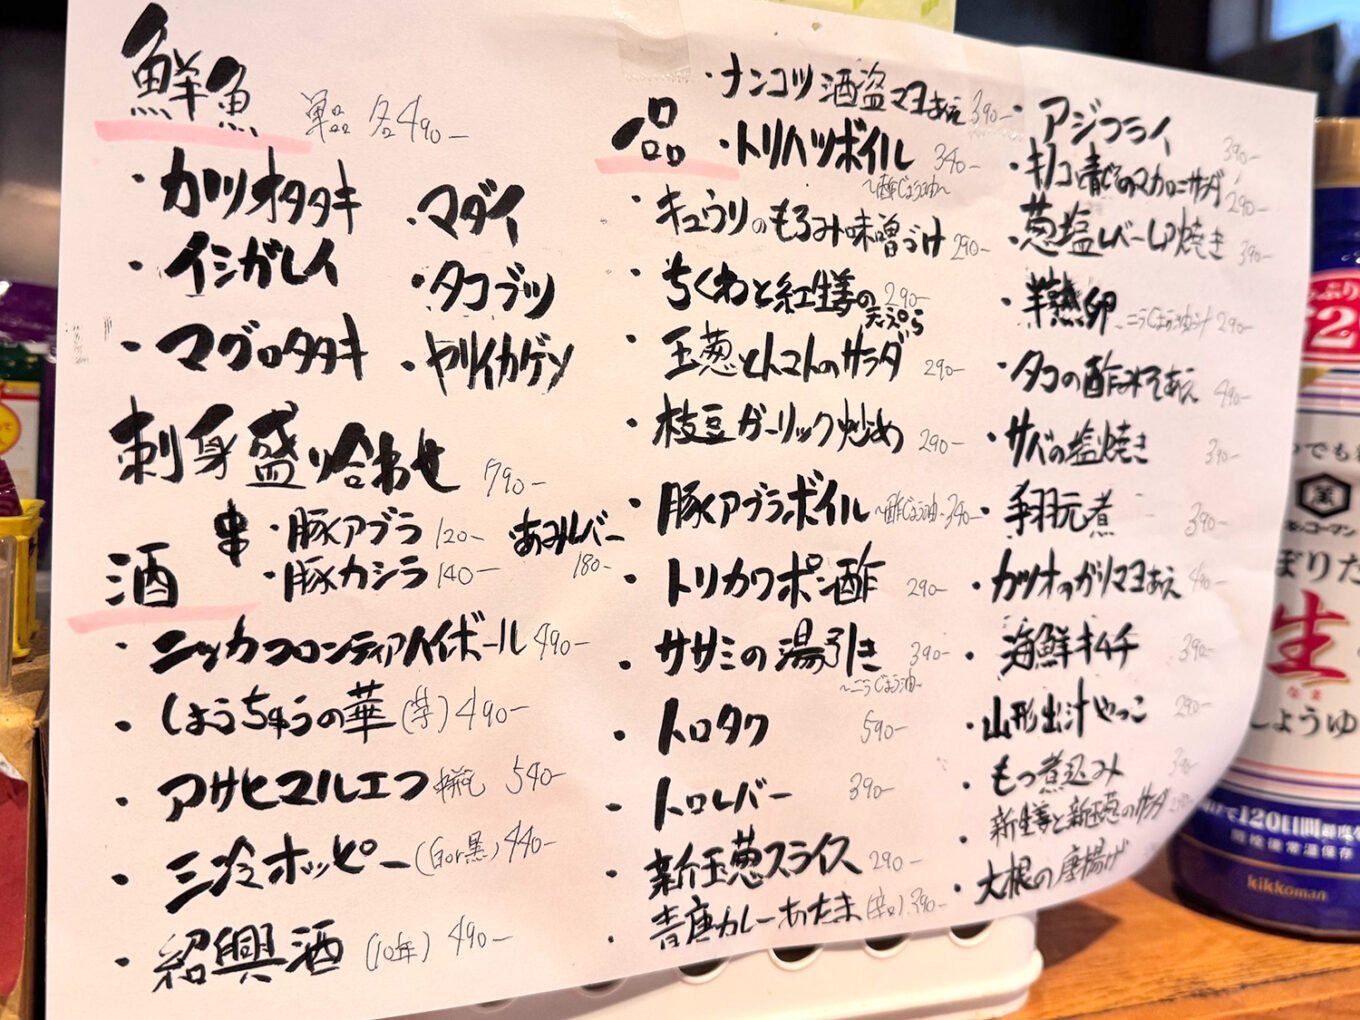 鮮魚 単品 各490-
・カツオタタキ
・イシガレイ
・マグロタタキ
・マダイ
・タコブツ
・ヤリイカゲソ
刺身盛り合わせ 790-
串 ・豚アブラ 120-
・豚カシラ 140-
あみレバー 180-
酒
・ニッカフロンティアハイボール 490-
・しょうちゅうの華(芋) 490-
・アサヒマルエフ 中瓶 540-
・三冷ホッピー(白or黒) 440-
・紹興酒(10年) 490-
一品
・ナンコツ酒盗マヨあえ 390-
・トリハツボイル 340-
〜酢じょうゆ〜
・キュウリのもろみ味噌づけ 290-
・ちくわと紅生姜の天ぷら 290-
・玉葱とトマトのサラダ 290-
・枝豆ガーリック炒め 290-
・豚アブラボイル 〜酢じょうゆ〜 340-
・トリカワポン酢 290-
・ササミの湯引き 390-
・トロタク 590-
・トロレバー 390-
・新玉葱スライス 290-
・青唐カレーあたま(辛口) 390-
・アジフライ 390-
・キノコと青じそのマカロニサラダ 290-
・葱塩レバーし焼き 390-
・半熟卵 290-
・タコの酢みそあえ 490-
・サバの塩焼き 390-
・手羽元煮 390-
・カツオのガリマヨあえ 490-
・海鮮キムチ 390-
・山形出汁やっこ 290-
・もつ煮込み 390-
・新生姜と新玉葱のサラダ
・大根の唐揚げ
いつでも新
キッコーマン
しぼりたて
生
なま
しょうゆ
120日間鮮度
開栓後常温保存
kikkoman